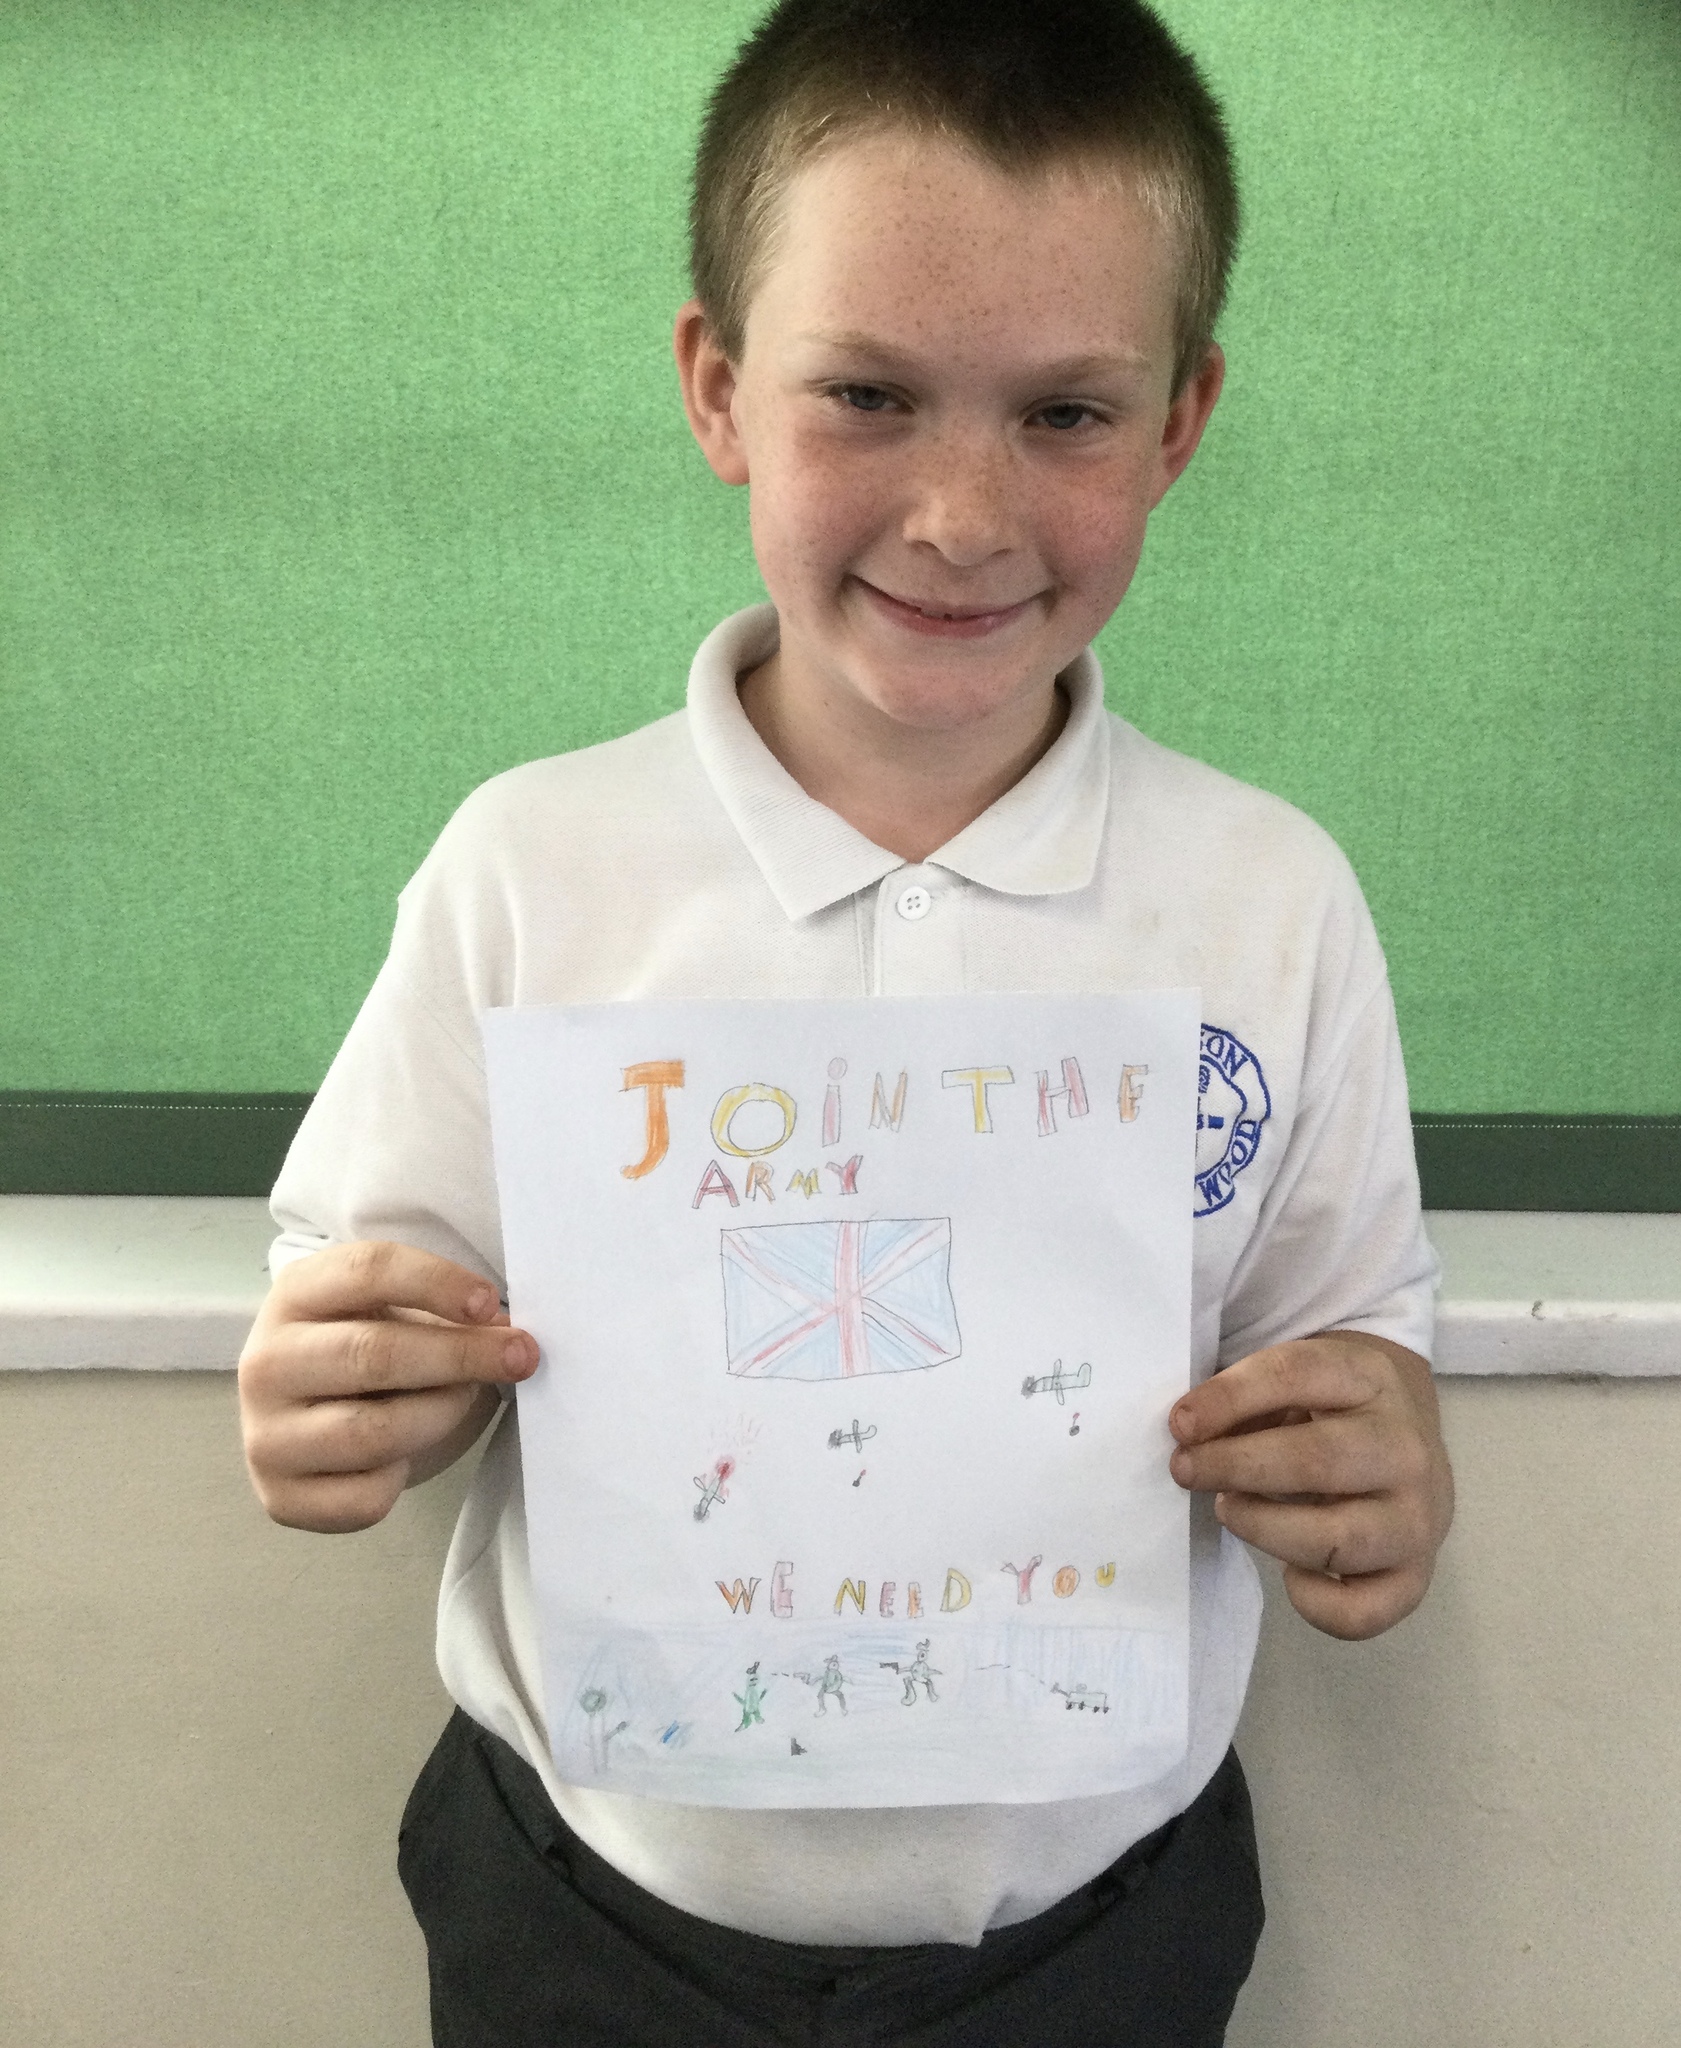 JOiN THE
ARMY
WE NEED YOU
WOOD